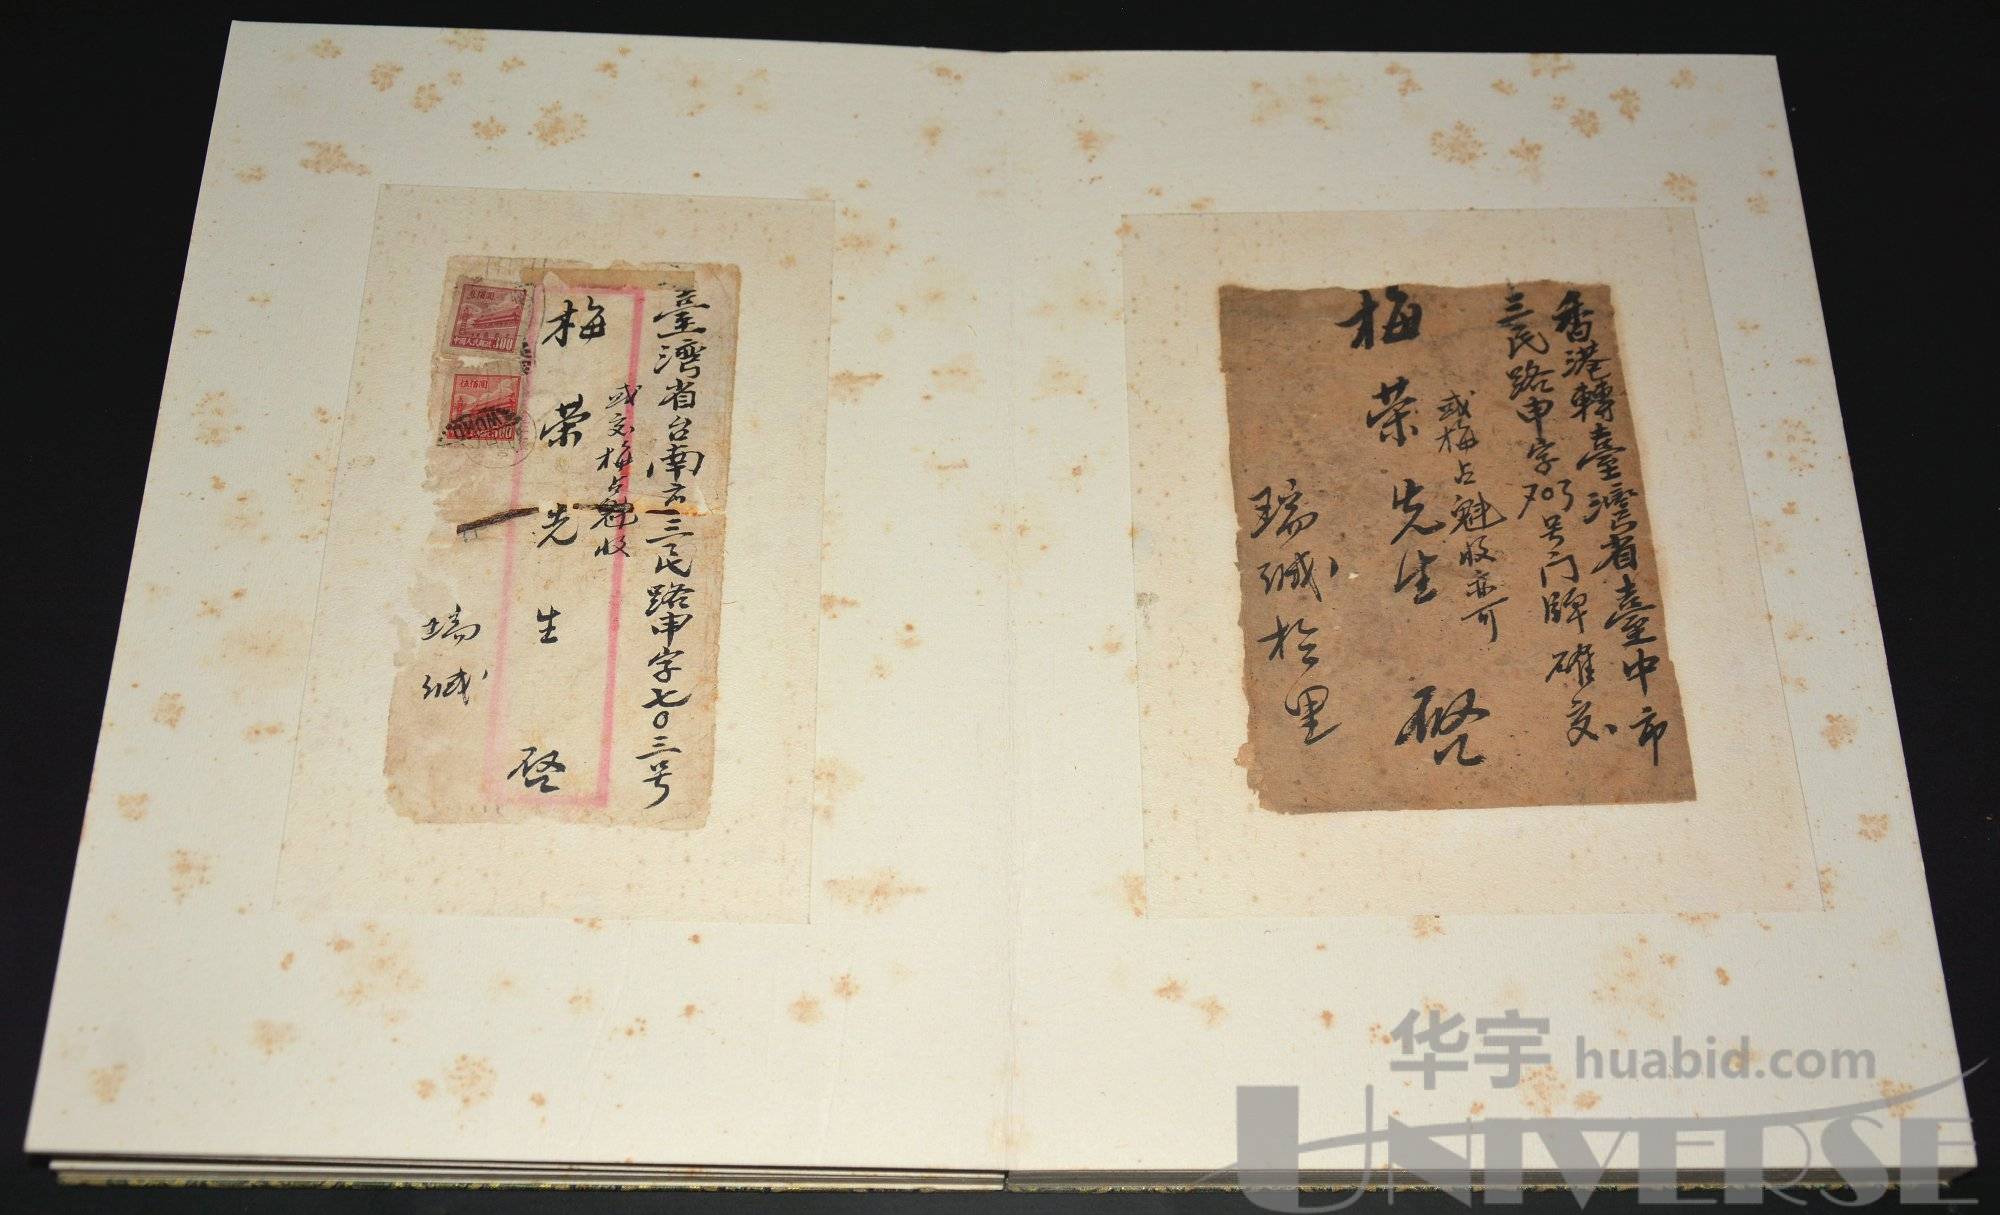 臺灣省台南市三民路申字七〇三号
或交梅占魁收
梅荣先生 啓
瑞缄
叁佰圆
中国人民邮政
300
伍佰圆
香港轉臺灣省臺中市
三民路申字703号门牌確交
或梅占魁收亦可
梅荣先生 啓
瑞缄於里
华宇 huabid.com
UNIVERSE